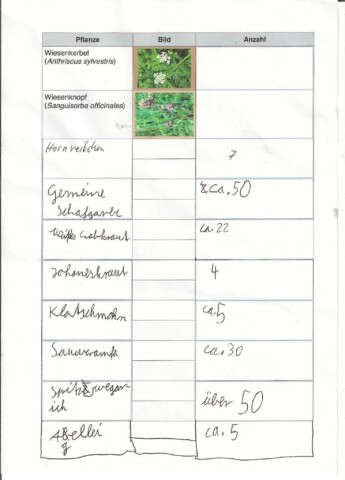 Pflanze Bild Anzahl
Wiesenkerbel
(Anthriscus sylvestris)
Wiesenknopf
(Sanguisorba officinales)
Hornveilchen 7
Gemeine ca. 50
Schafgarbe
Weißes Labkraut ca. 22
Johaneskraut 4
Klatschmohn ca. 5
Sauerampfa ca. 30
Spitzwegar-
ich über 50
ca. 5